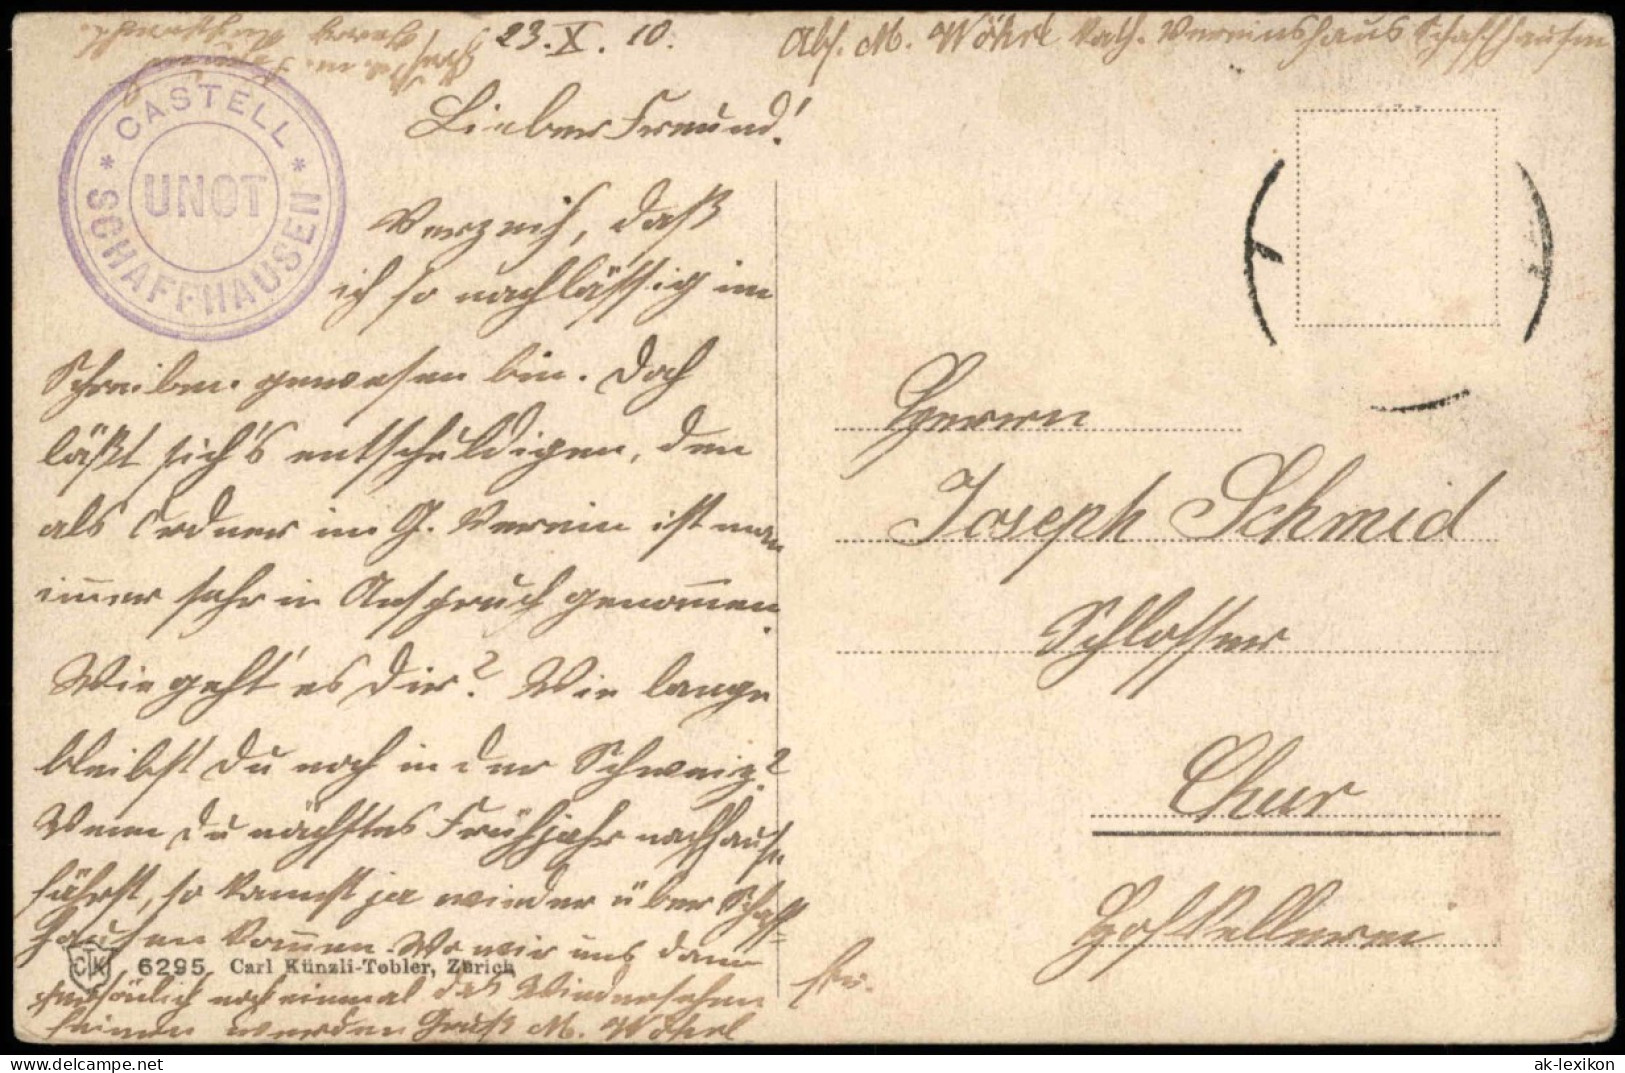 23. X. 10.
Abs. M. Wöhrl Kath. Vereinshaus Schaffhausen
CASTELL
UNOT
SCHAFFHAUSEN
Lieber Freund!
Verzeih, daß
ich so nachlässig im
Schreiben gewesen bin. Doch
läßt sich's entschuldigen, den
als Ordner im G. Verein ist man
immer sehr in Anspruch genommen.
Wie geht es Dir? Wie lange
bleibst Du noch in der Schweiz?
Wenn Du nächstes Frühjahr nachhause
fährst, so kannst ja wieder über Schaff-
hausen kommen. Wo wir uns dann
persönlich noch einmal das Wiedersehen
feiern werden Gruß M. Wöhrl
CTK 6295 Carl Künzli-Tobler, Zürich
Herrn
Joseph Schmid
Schlosser
Chur
Hofkellerei